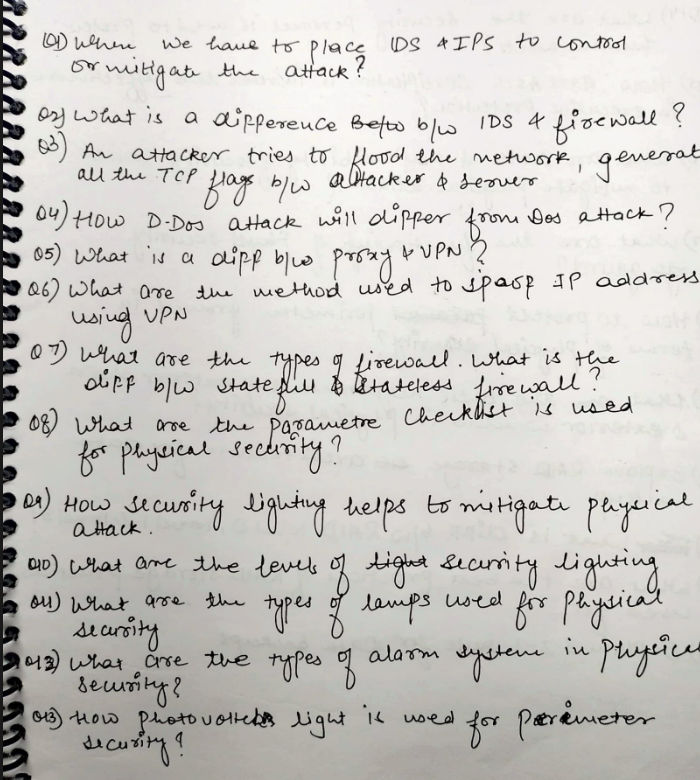 Q1) When we have to place IDS & IPS to control
or mitigate the attack?
Q2) What is a difference b/w IDS & firewall?
Q3) An attacker tries to flood the network, generat
all the TCP flags b/w attacker & server
Q4) How D-Dos attack will differ from Dos attack?
Q5) What is a diff b/w proxy & VPN?
Q6) What are the method used to spoof IP address
using VPN
Q7) What are the types of firewall. What is the
diff b/w statefull & stateless firewall?
Q8) What are the parametre checklist is used
for physical security?
Q9) How security lighting helps to mitigate physical
attack.
Q10) What are the levels of light security lighting
Q11) What are the types of lamps used for physical
security
Q12) What are the types of alarm system in physical
security?
Q13) How photovoltics light is used for perimeter
security?